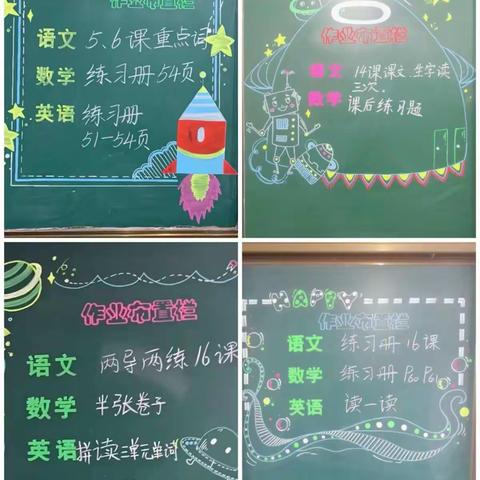 作业布置栏
语文 5、6课重点词
数学 练习册54页
英语 练习册
51—54页
作业布置栏
语文 14课课文、生字读
三次.
数学 课后练习题
作业布置栏
语文 两导两练16课
数学 半张卷子
英语 拼读三单元单词
HAPPY
作业布置栏
语文 练习册16课
数学 练习册
英语 读一读